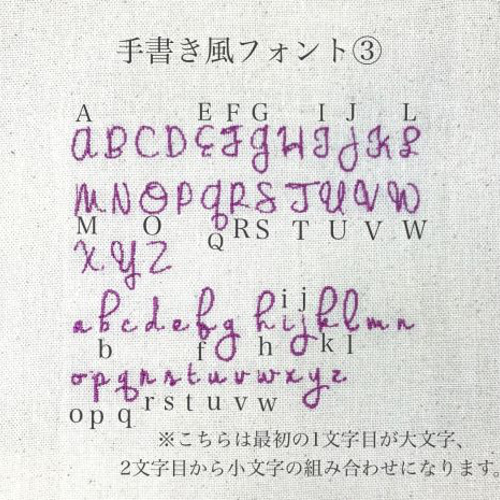 手書き風フォント③
A E F G I J L
A B C D E F G H I J K L
M N O P Q R S T U V W
M O Q R S T U V W
X Y Z
i j
a b c d e f g h i j k l m n
b f h k l
o p q r s t u v w x y z
o p q r s t u v w
※こちらは最初の1文字目が大文字、
2文字目から小文字の組み合わせになります。